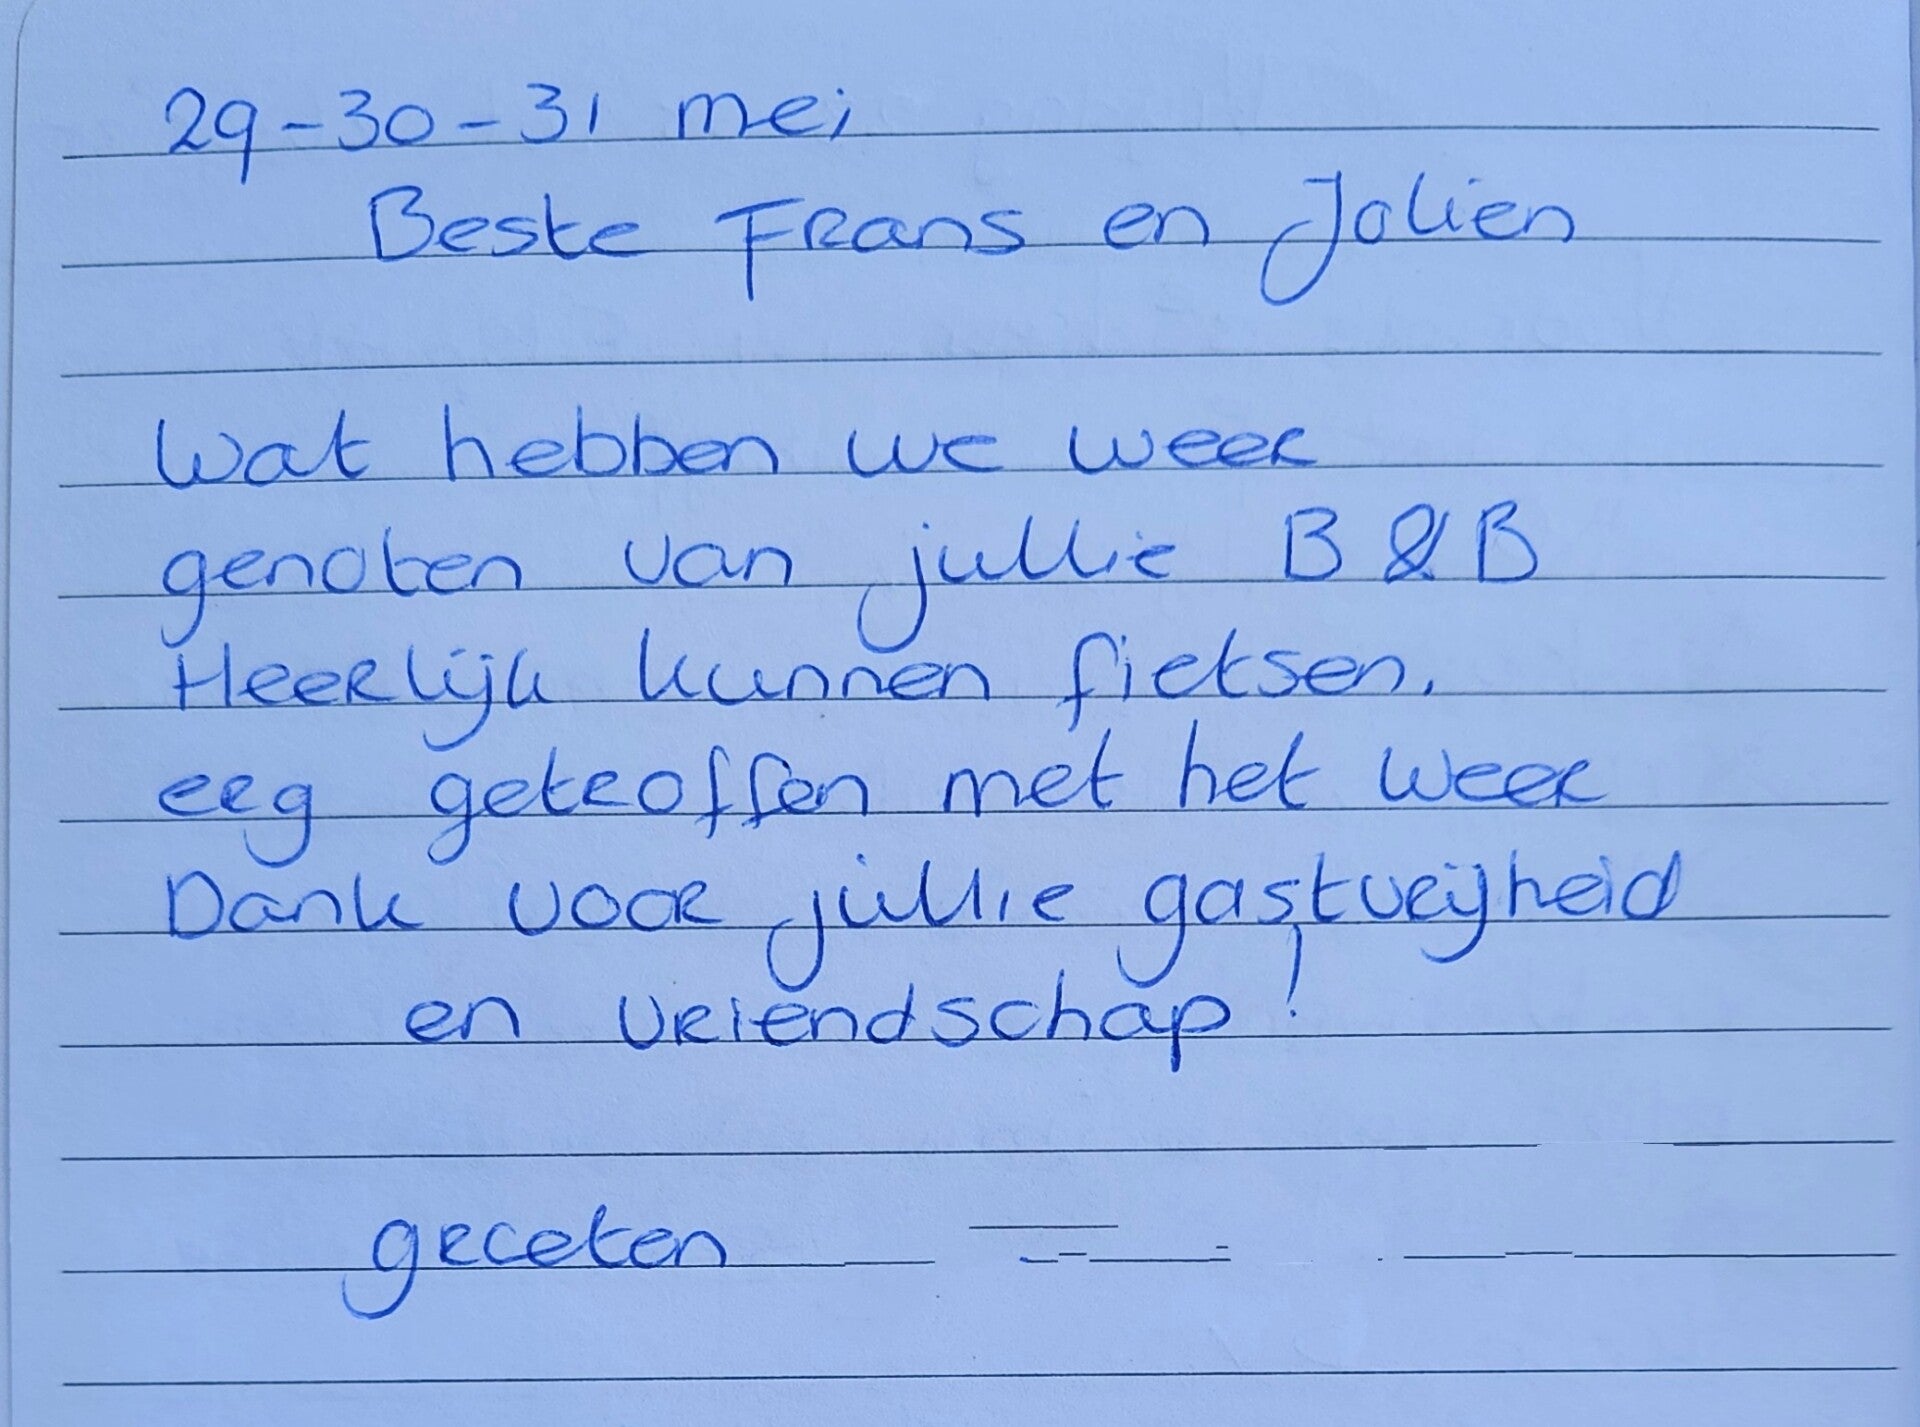 29-30-31 mei
Beste Frans en Jolien
Wat hebben we weer
genoten van jullie B & B
Heerlijk kunnen fietsen.
erg getroffen met het weer
Dank voor jullie gastvrijheid
en vriendschap!
groeten